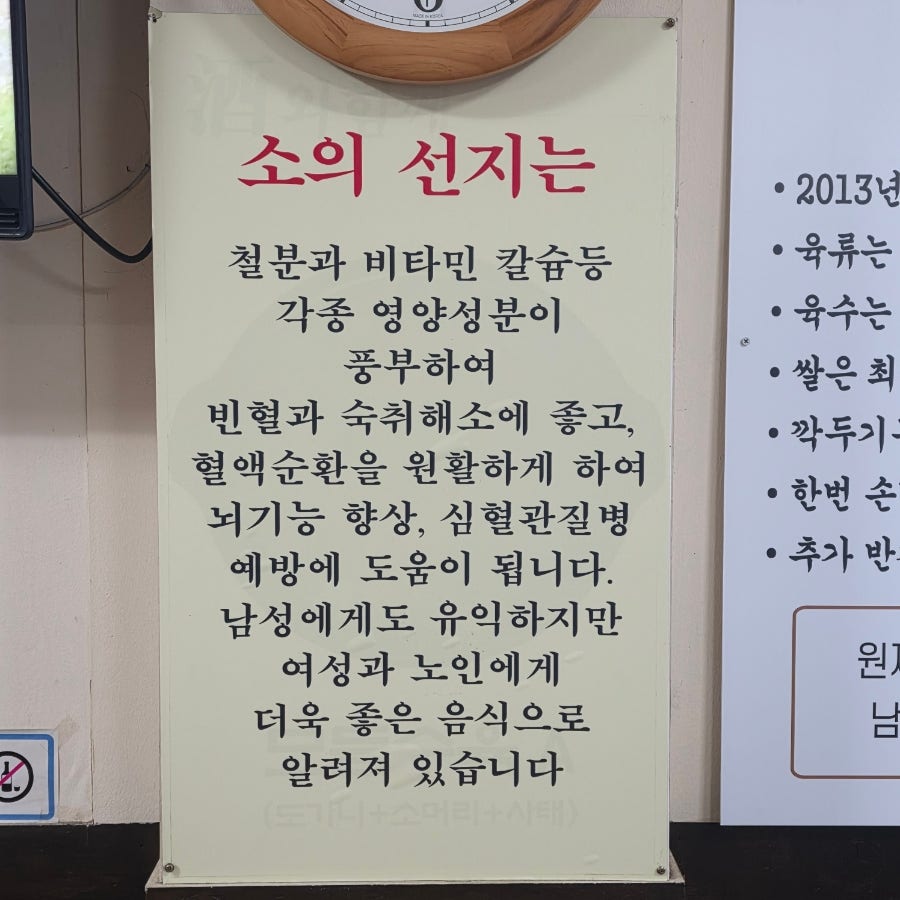 MADE IN KOREA
소의 선지는
철분과 비타민 칼슘등
각종 영양성분이
풍부하여
빈혈과 숙취해소에 좋고,
혈액순환을 원활하게 하여
뇌기능 향상, 심혈관질병
예방에 도움이 됩니다.
남성에게도 유익하지만
여성과 노인에게
더욱 좋은 음식으로
알려져 있습니다
(도가니+소머리+사태)
• 2013년
• 육류는
• 육수는
• 쌀은 최
• 깍두기
• 한번 손
• 추가 반
원
남